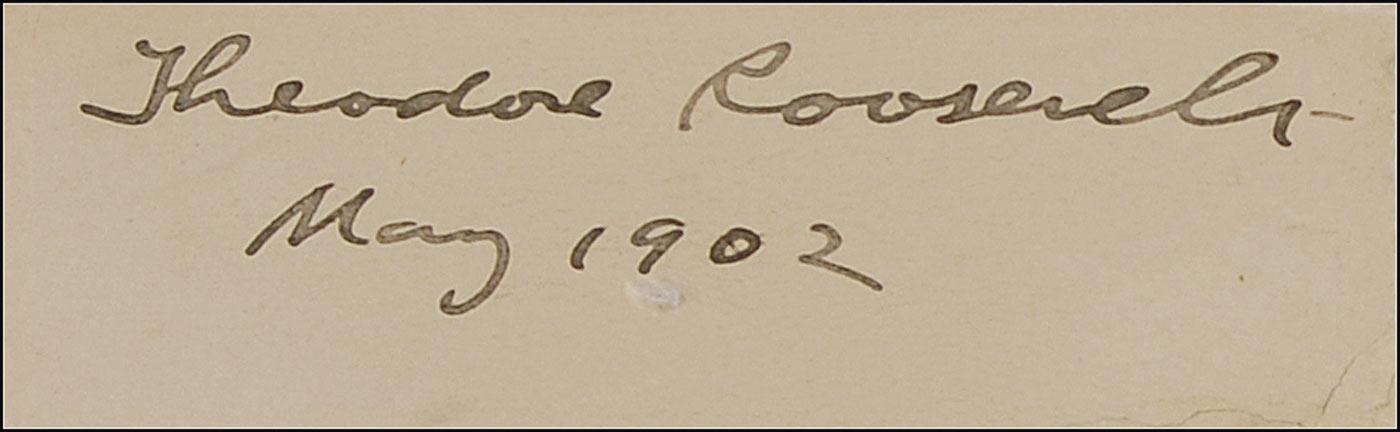 Theodore Roosevelt
May 1902